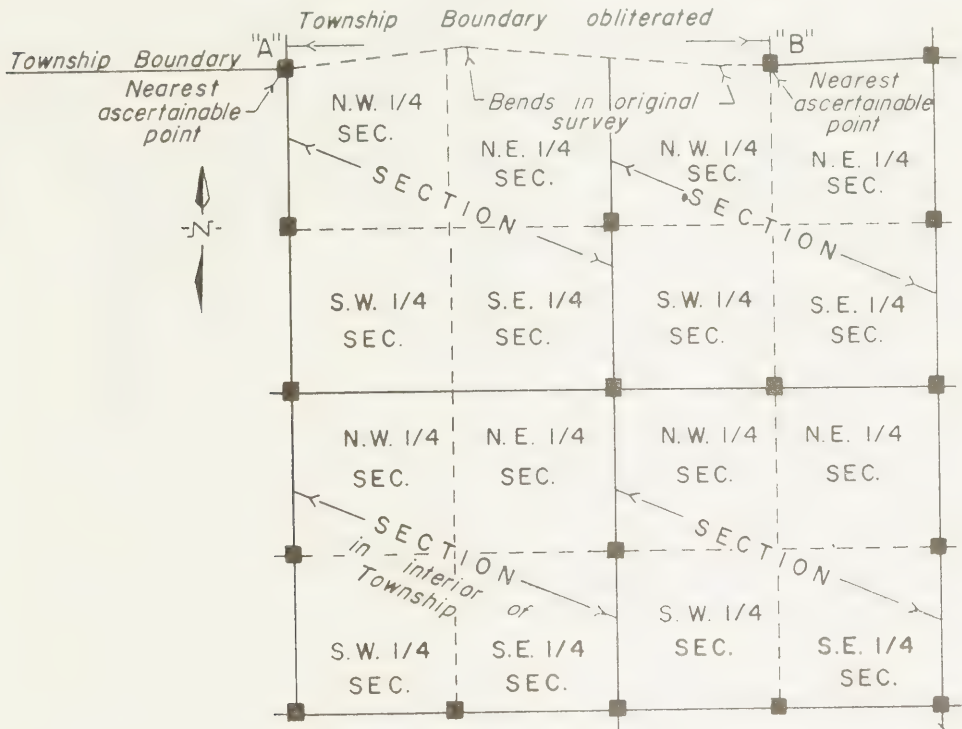 Township Boundary obliterated
"A"
"B"
Township Boundary
Nearest
ascertainable
point
Bends in original
survey
Nearest
ascertainable
point
N.W. 1/4
SEC.
N.E. 1/4
SEC.
N.W. 1/4
SEC.
N.E. 1/4
SEC.
SECTION
SECTION
N
S.W. 1/4
SEC.
S.E. 1/4
SEC.
S.W. 1/4
SEC.
S.E. 1/4
SEC.
N.W. 1/4
SEC.
N.E. 1/4
SEC.
N.W. 1/4
SEC.
N.E. 1/4
SEC.
SECTION
in interior of
Township
SECTION
S.W. 1/4
SEC.
S.E. 1/4
SEC.
S.W. 1/4
SEC.
S.E. 1/4
SEC.